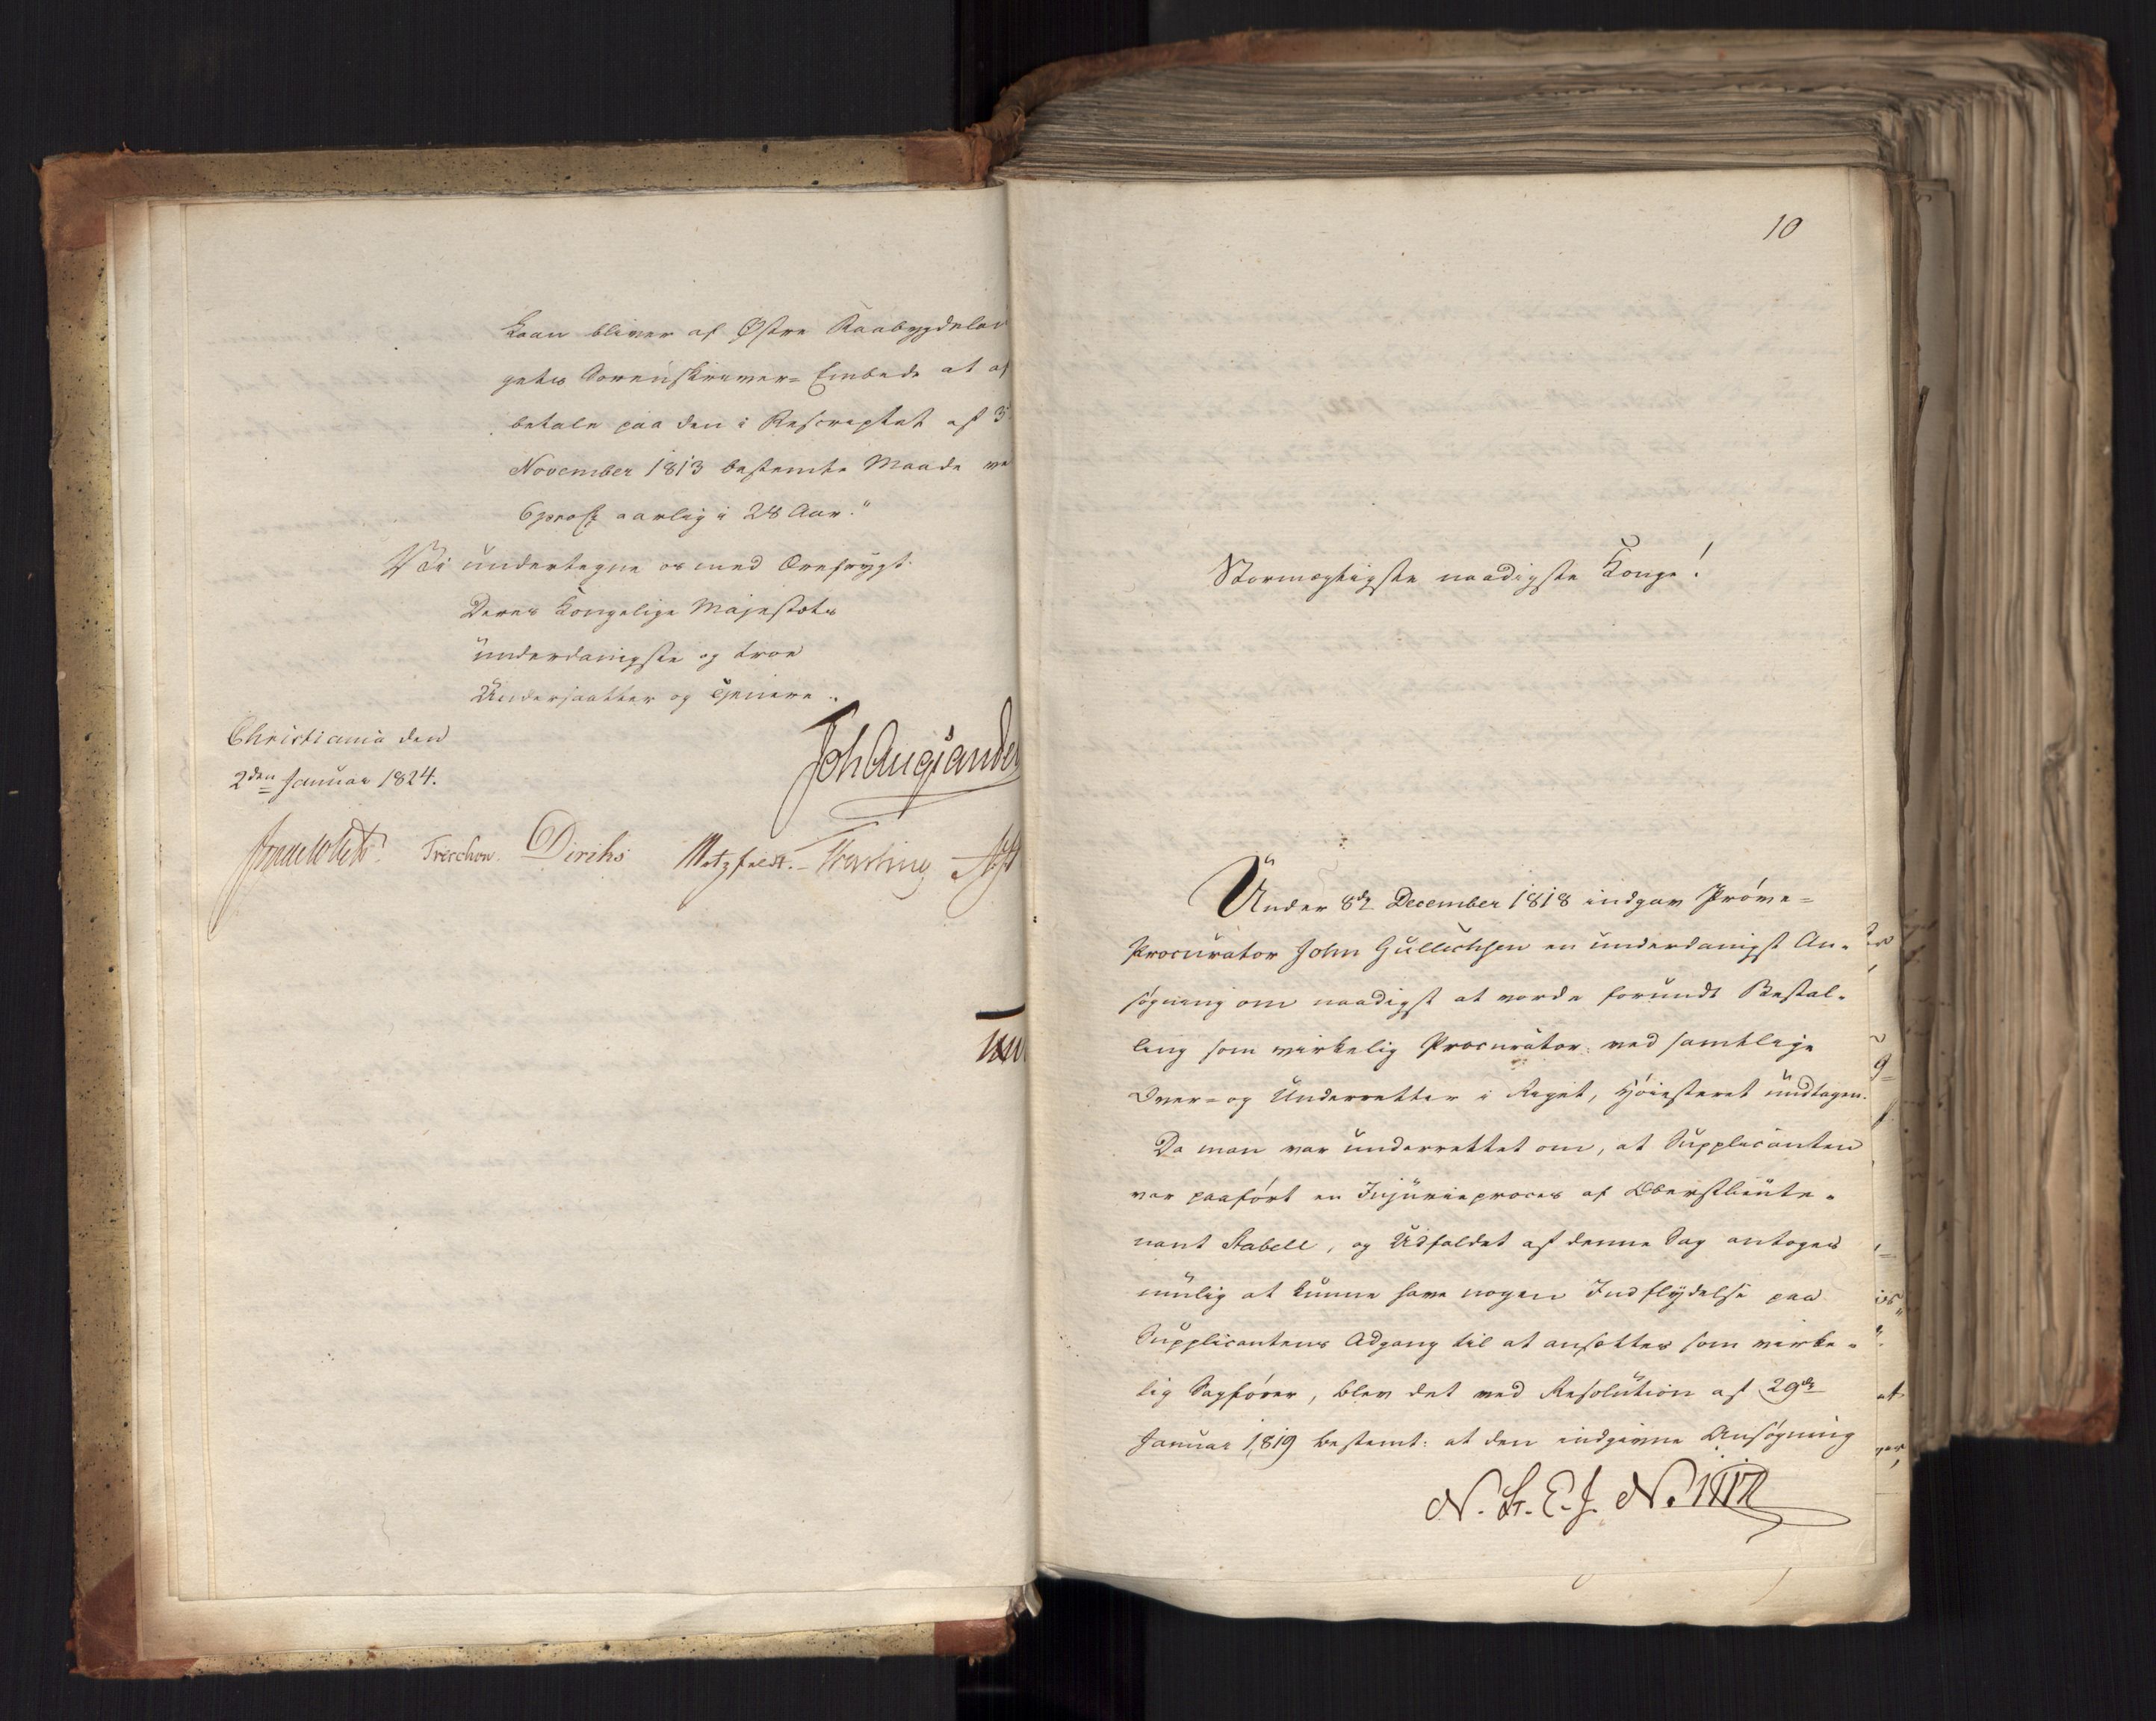 Laan bliver af Østre Raabygdelau
gets Sorenskriver- Embede at af
betale paa den i Rescriptet af 3
November 1813 bestemte Maade me
6 proCt aarlig i 28 Aar."
Vi undertegne os med Ærefrygt
Deres Kongelige Majestæts
underdanigste og troe
Undersaatter og Tjenere.
Christiania den
2den Januar 1824.
Joh Aug Sande
Treschow. Diriks Motzfeldt. Fasting
10
Stormægtigste naadigste Konge!
Under 8de December 1818 indgav Prøve=
Procurator John Gullichsen en underdanigst An-
søgning om naadigst at vorde forundt Bestal-
ling som virkelig Procurator ved samtlige
Over- og Underretter i Riget, Høiesteret undtagen.
Da man var underrettet om, at Supplicanten
var paaført en Injurieproces af Oberstlieute-
nant Stabell, og Udfaldet af denne Sag antoges
mulig at kunne have nogen Indflydelse paa
Supplicantens Adgang til at ansættes som virke-
lig Sagfører, blev det ved Resolution af 29de
Januar 1819 bestemt: at den indgivne Ansøgning